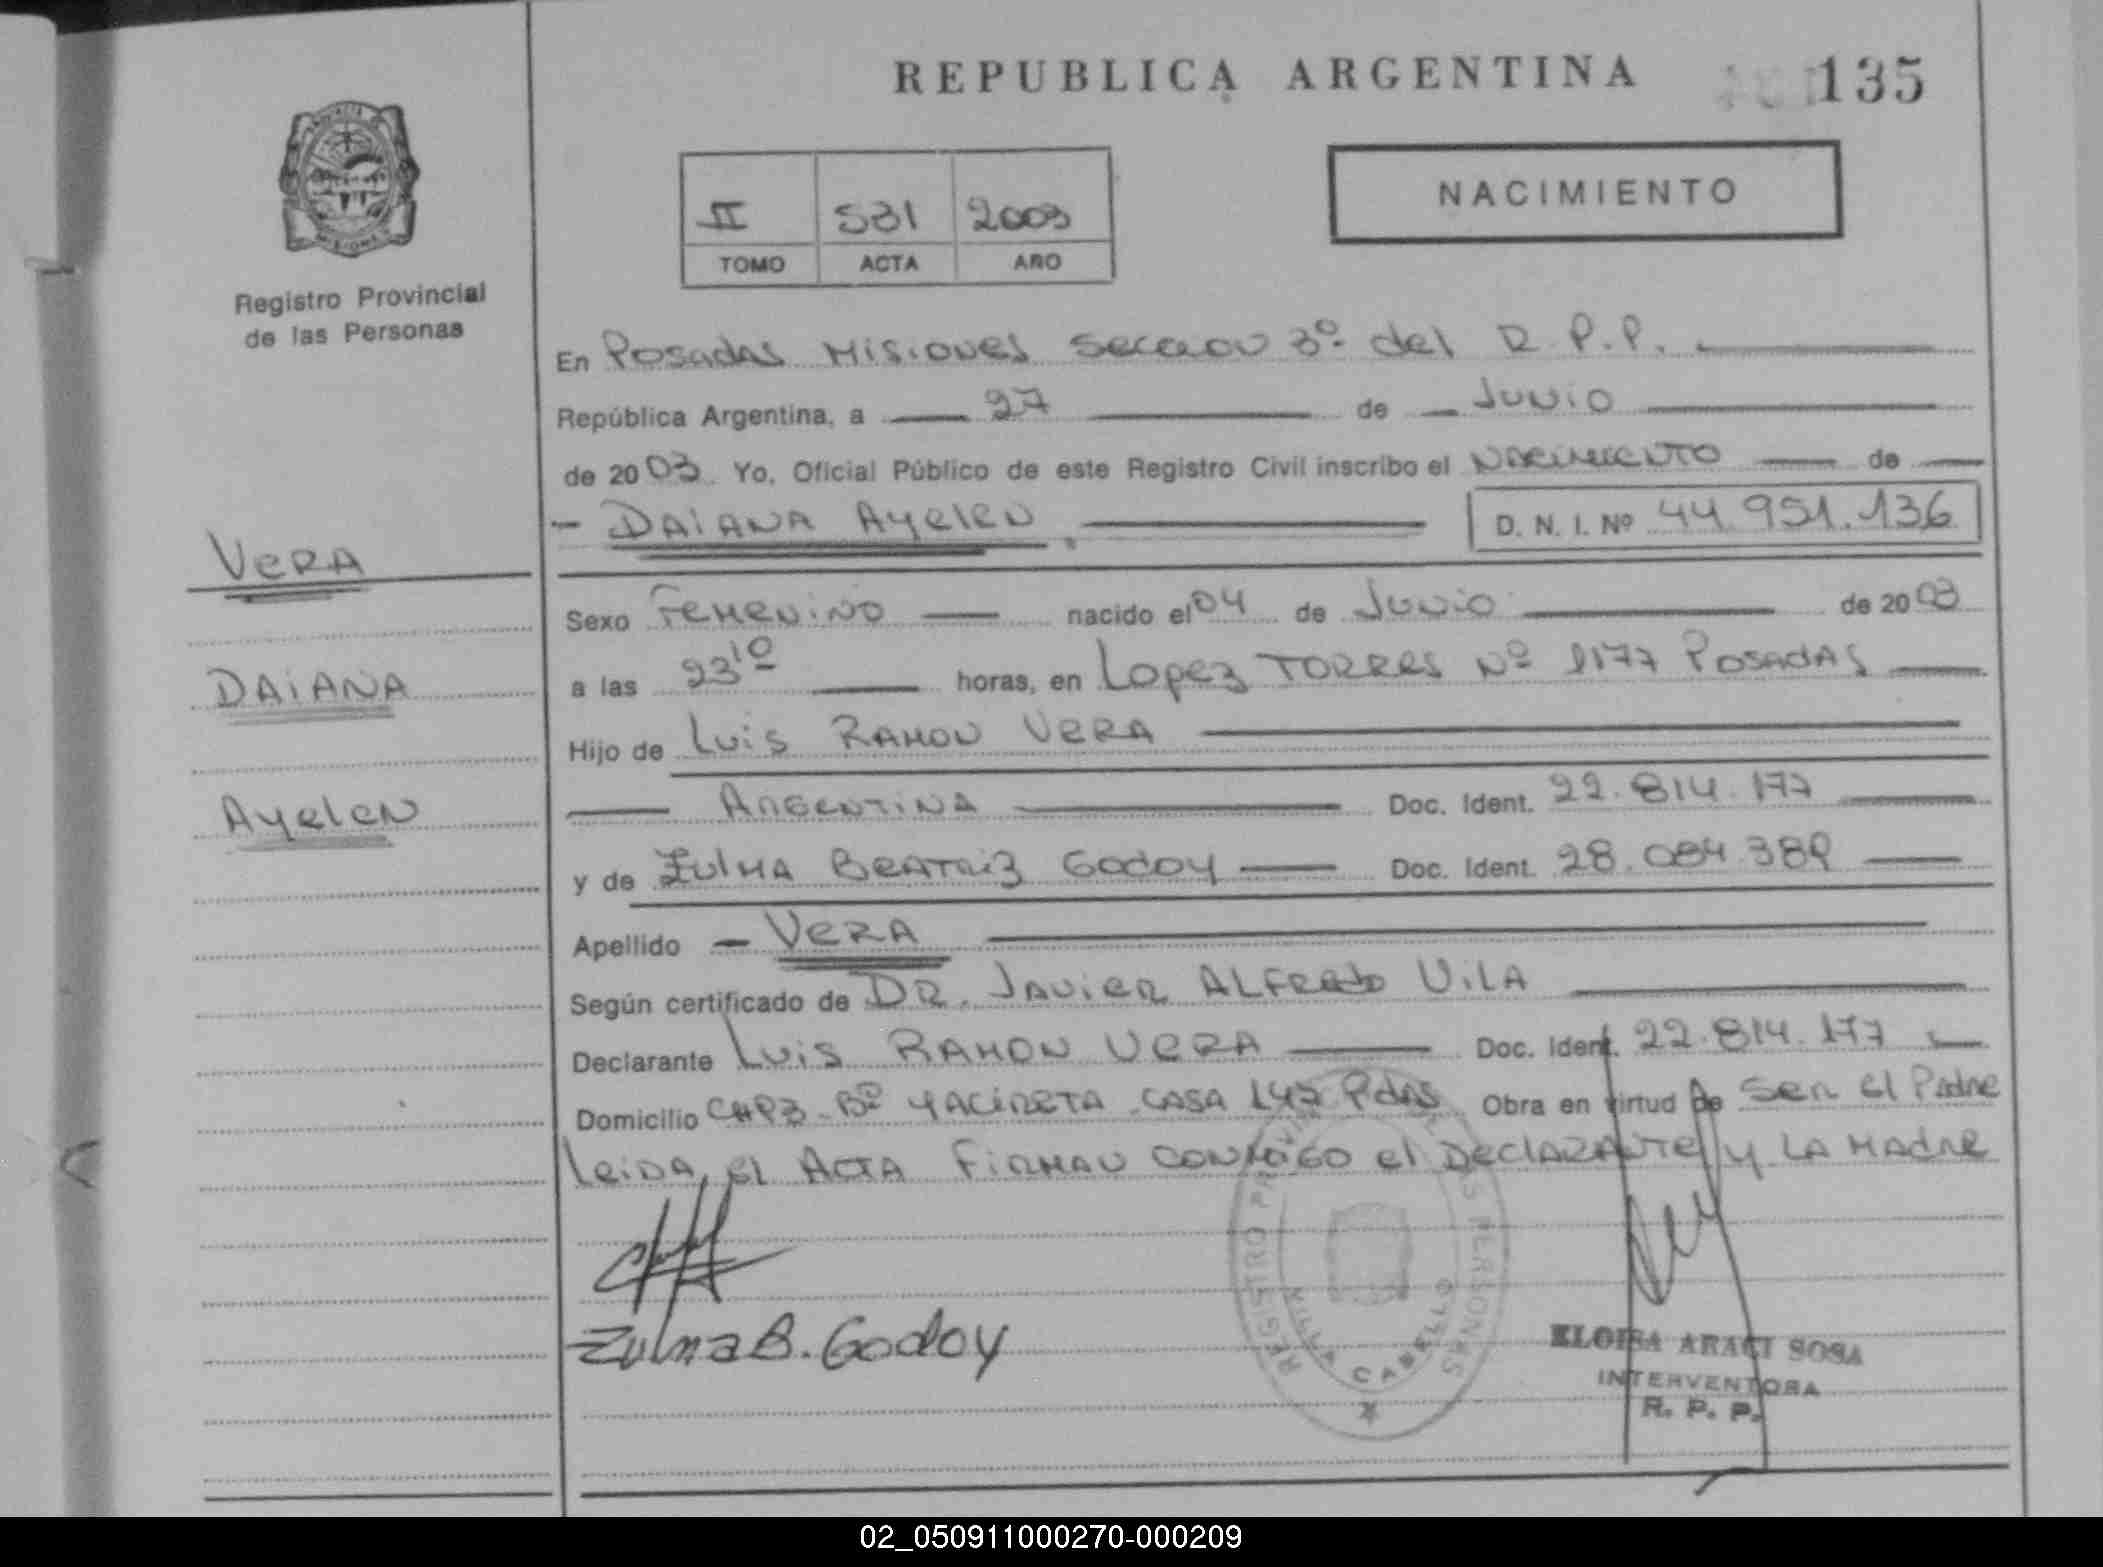 REPUBLICA ARGENTINA
135
NACIMIENTO
II 531 2003
TOMO ACTA AÑO
Registro Provincial
de las Personas
VERA
DAIANA
Ayelen
En Posadas Misiones Seccion 3º del R.P.P.
República Argentina, a 27 de Junio
de 2003. Yo, Oficial Público de este Registro Civil inscribo el Nacimiento de
DAIANA Ayelen D. N. I. Nº 44.951.136
Sexo Femenino nacido el 04 de Junio de 2003
a las 23 10 horas, en Lopez TORRES Nº 1177 POSADAS
Hijo de Luis RAMON VERA
ARGENTINA Doc. Ident. 22.814.177
y de Zulma BEATRIZ Godoy Doc. Ident. 28.084.389
Apellido VERA
Según certificado de DR. JAVIER ALFREDO VILA
Declarante Luis RAMON VERA Doc. Ident. 22.814.177
Domicilio Bº YACIRETA CASA 147 Pdas Obra en virtud de Ser el Padre
Leida el ACTA FIRMAN CONMIGO el DECLARANTE y LA MADRE
Zulma B. Godoy
REGISTRO PROVINCIAL DE LAS PERSONAS
VILLA CABELLO
ELOISA ARACI SOSA
INTERVENTORA
R. P. P.
02_050911000270-000209